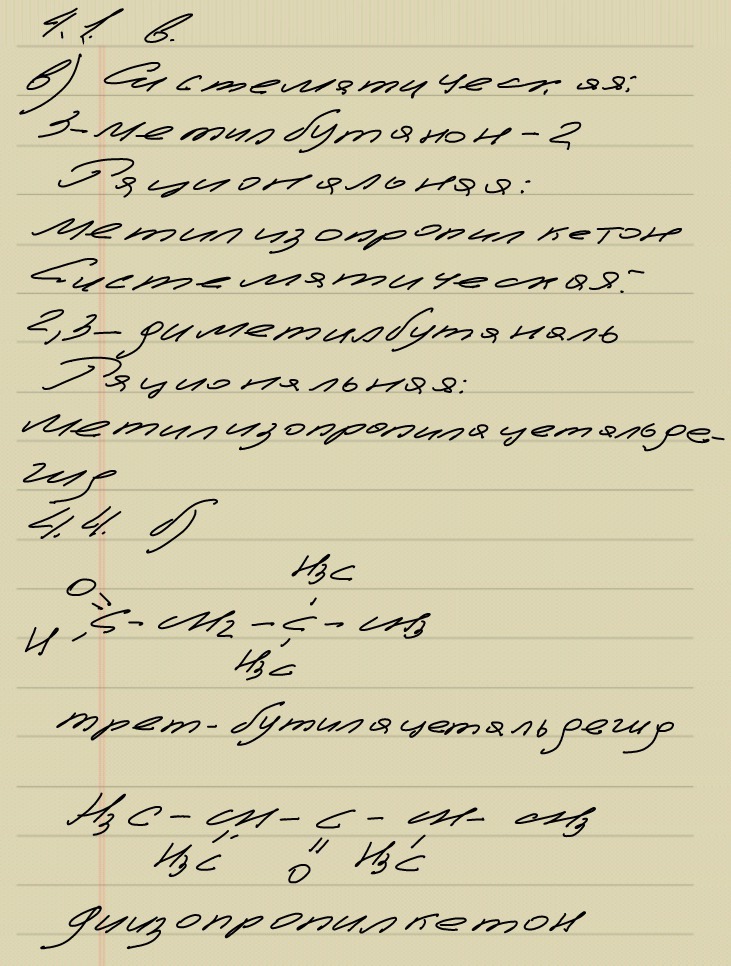 4.1 в.
в) Систематическая:
3-метилбутанон-2
Рациональная:
метилизопропилкетон
Систематическая:
2,3-диметилбутаналь
Рациональная:
метилизопропилацетальде-
гид
4.4. б)
H3C
O
C - CH2 - C - CH3
H
H3C
трет-бутилацетальдегид
H3C - CH - C - CH - CH3
H3C O H3C
диизопропилкетон